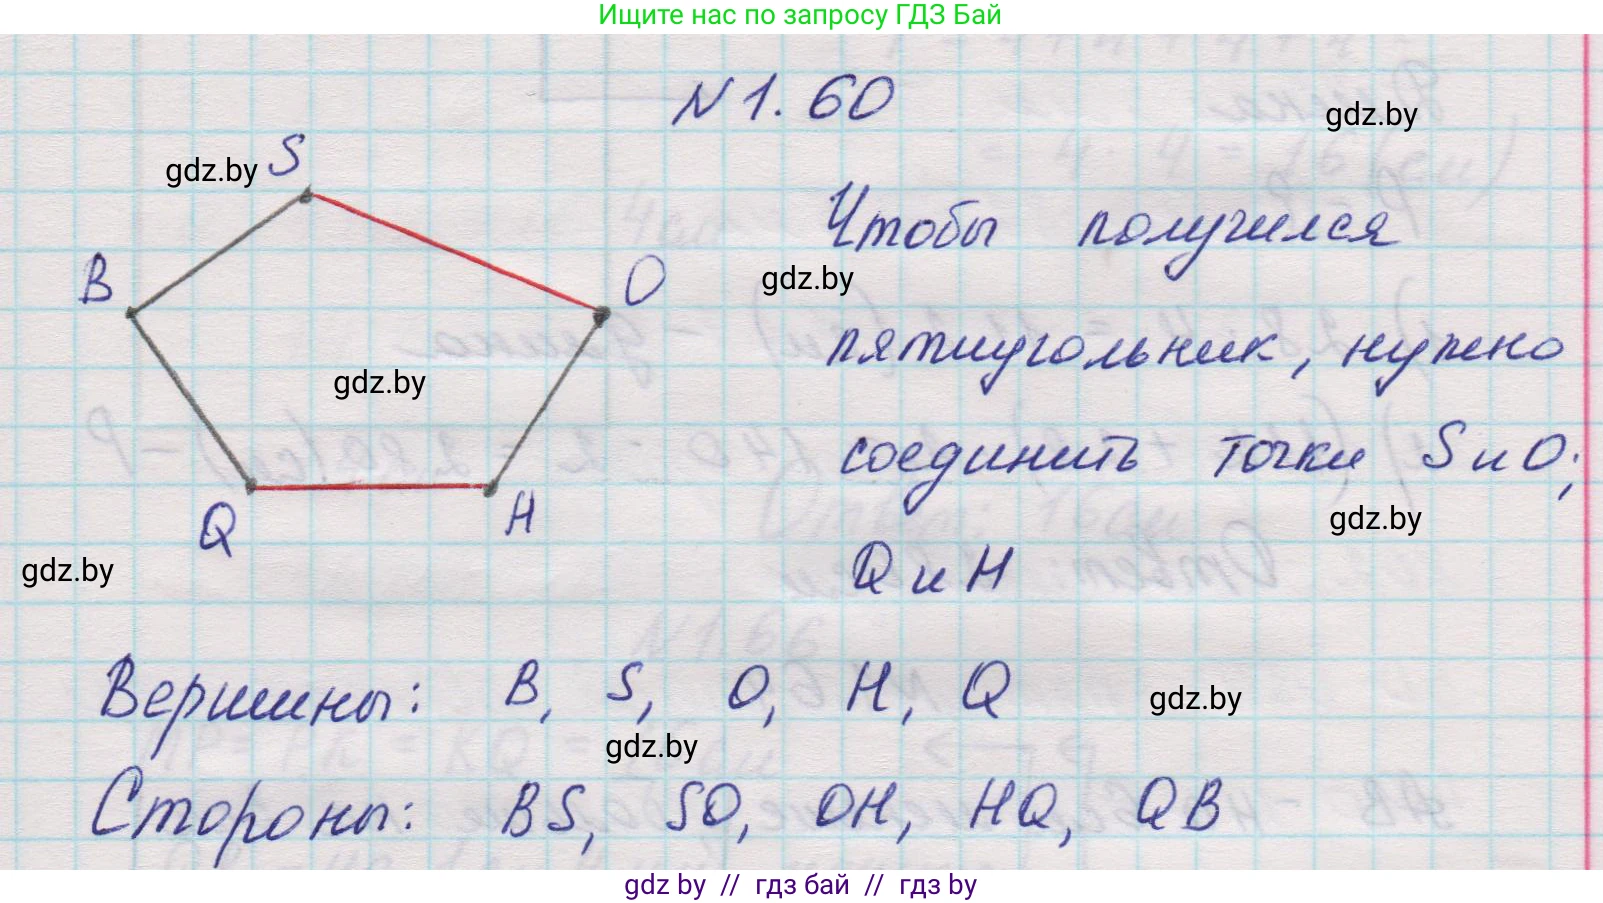 Ищите нас по запросу ГДЗ Бай
N 1. 60
gdz.by
gdz.by
S
Чтобы получился
B
O
gdz.by
пятиугольник, нужно
gdz.by
соединить точки S и O;
Q
H
gdz.by
Q и H
gdz.by
Вершины: B, S, O, H, Q
gdz.by
gdz.by
Стороны: BS, SO, OH, HQ, QB
gdz by // гдз бай // гдз by